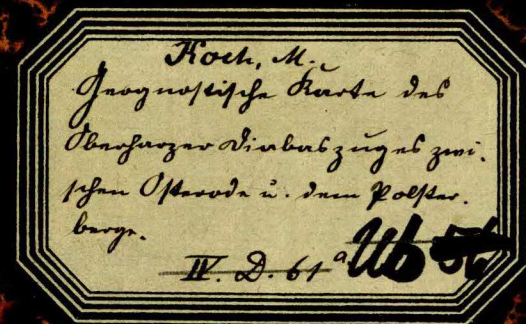 Koch, M.,
Geognostische Karte des
Oberharzer Diabaszuges zwi-
schen Osterode u. dem Polster-
berge.
IV. D. 61ᵃ Ub 56